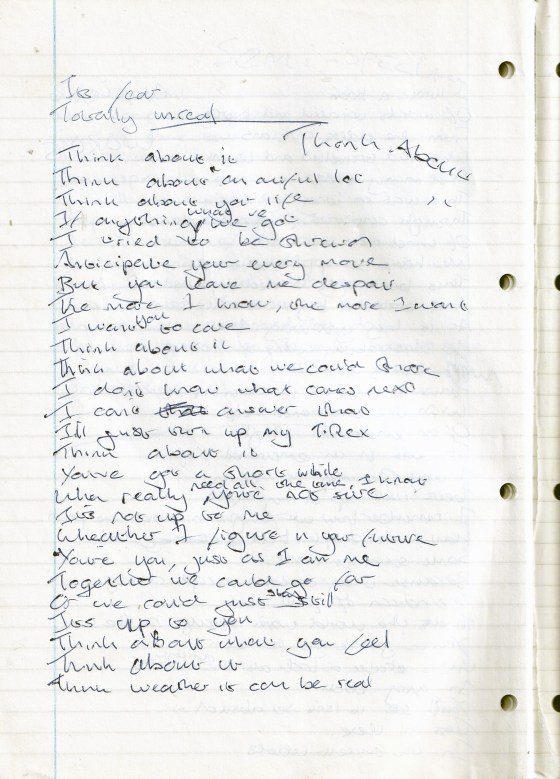 Its for
Totally unreal
Think About
Think about it
Think about an awful lot
Think about your life ,,
If anything what we've got
I tried to be
Anticipate your every move
But you leave me despair
The more I know, the more I want
I want you to care
Think about it
Think about what we could share
I don't know what comes next
I cant answer that
I'll just turn up my T.Rex
Think about it
You've got a short while
need all the time I know
When really, you're not sure
Its not up to me
Wheather I figure in your future
You're you, just as I am me
Together we could go far
Or we could just stay still
Its up to you
Think about what you feel
Think about it
Think weather it can be real